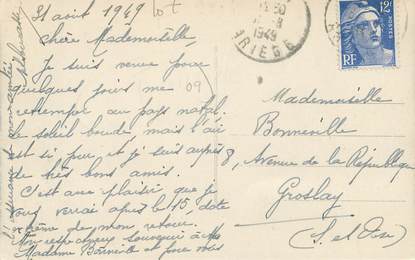 31 août 1949
Chère Mademoiselle,
Je suis venue pour
quelques jours me
retremper au pays natal.
Le soleil boude, mais l'air
est si pur, et je suis auprès
de très bons amis.
C'est avec plaisir que je
vous verrai après le 15, date
extrême de mon retour.
Mon respectueux souvenir à
Madame Bonneville et pour vous
et mon amitié
09
1949
ARIEGE
12F
POSTES
RF
Mademoiselle
Bonneville
8, Avenue de la République
Groslay
(S. et Oise)